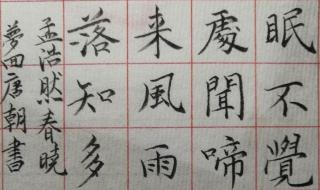 眠不覺
處聞啼
来風雨
落知多
孟浩然春晓
夢回唐朝書